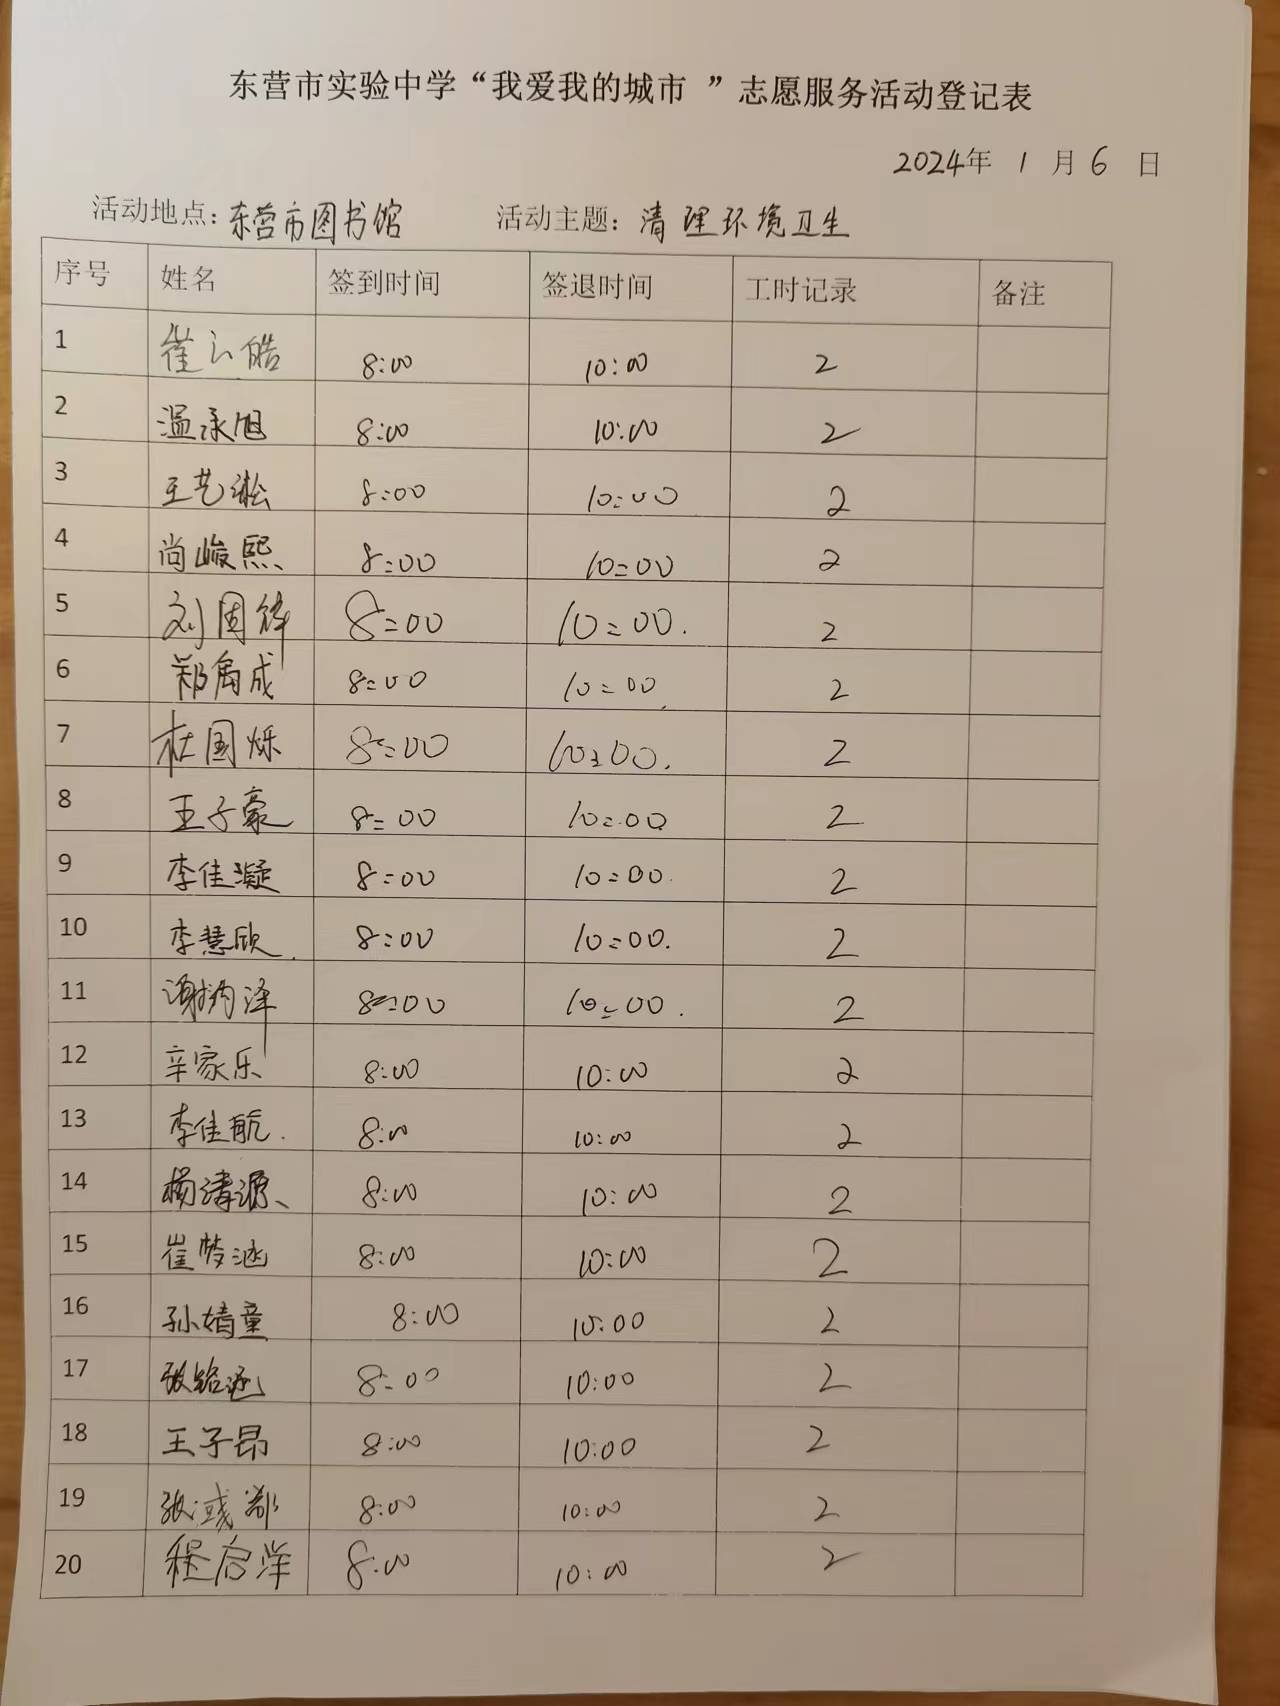 东营市实验中学“我爱我的城市 ”志愿服务活动登记表
2024年 1 月 6 日
活动地点：东营市图书馆 活动主题：清理环境卫生
序号 姓名 签到时间 签退时间 工时记录 备注
1 崔 皓 8:00 10:00 2
2 温承旭 8:00 10:00 2
3 王艺淞 8:00 10:00 2
4 尚峻熙 8:00 10:00 2
5 刘固 8:00 10:00. 2
6 郑禹成 8:00 10:00. 2
7 杜国烁 8:00 10:00. 2
8 王子豪 8:00 10:00 2
9 李佳凝 8:00 10:00 2
10 李慧欣. 8:00 10:00. 2
11 谢 泽 8:00 10:00. 2
12 辛家乐 8:00 10:00 2
13 李佳航. 8:00 10:00 2
14 杨清源 8:00 10:00 2
15 崔梦涵 8:00 10:00 2
16 孙婧童 8:00 10:00 2
17 张铭涵 8:00 10:00 2
18 王子昂 8:00 10:00 2
19 张 8:00 10:00 2
20 程启洋 8:00 10:00 2